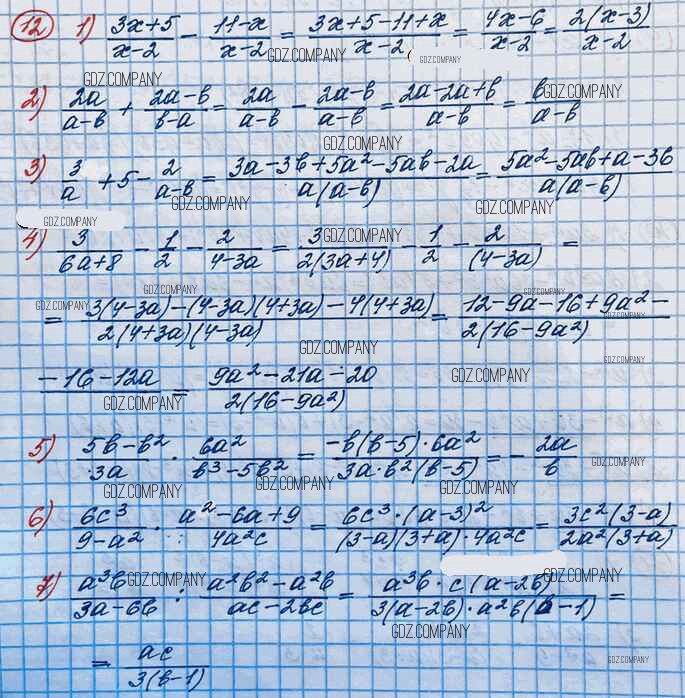 12 1) (3x+5)/(x-2) - (11-x)/(x-2) = (3x+5-11+x)/(x-2) = (4x-6)/(x-2) = 2(x-3)/(x-2)
GDZ.COMPANY GDZ.COMPANY
GDZ.COMPANY
2) 2a/(a-b) + (2a-b)/(b-a) = 2a/(a-b) - (2a-b)/(a-b) = (2a-2a+b)/(a-b) = b/(a-b)
GDZ.COMPANY
GDZ.COMPANY
3) 3/a + 5 - 2/(a-b) = (3a-3b+5a²-5ab-2a)/(a(a-b)) = (5a²-5ab+a-3b)/(a(a-b))
GDZ.COMPANY GDZ.COMPANY
GDZ.COMPANY
4) 3/(6a+8) - 1/2 - 2/(4-3a) = 3/(2(3a+4)) - 1/2 - 2/(4-3a) =
GDZ.COMPANY
GDZ.COMPANY GDZ.COMPANY
GDZ.COMPANY GDZ.COMPANY
= (3(4-3a)-(4-3a)(4+3a)-4(4+3a))/(2(4+3a)(4-3a)) = (12-9a-16+9a²-
-16-12a)/(2(16-9a²)) = (9a²-21a-20)/(2(16-9a²))
GDZ.COMPANY GDZ.COMPANY
GDZ.COMPANY GDZ.COMPANY
5) (5b-b²)/3a · 6a²/(b³-5b²) = (-b(b-5)·6a²)/(3a·b²(b-5)) = - 2a/b
GDZ.COMPANY
GDZ.COMPANY GDZ.COMPANY GDZ.COMPANY
6) 6c³/(9-a²) · (a²-6a+9)/4a²c = (6c³·(a-3)²)/((3-a)(3+a)·4a²c) = 3c²(3-a)/(2a²(3+a))
7) a³b/(3a-6b) : (a²b²-a²b)/(ac-2bc) = (a³b·c(a-2b))/(3(a-2b)·a²b(b-1)) =
GDZ.COMPANY GDZ.COMPANY
GDZ.COMPANY
= ac/(3(b-1))
GDZ.COMPANY